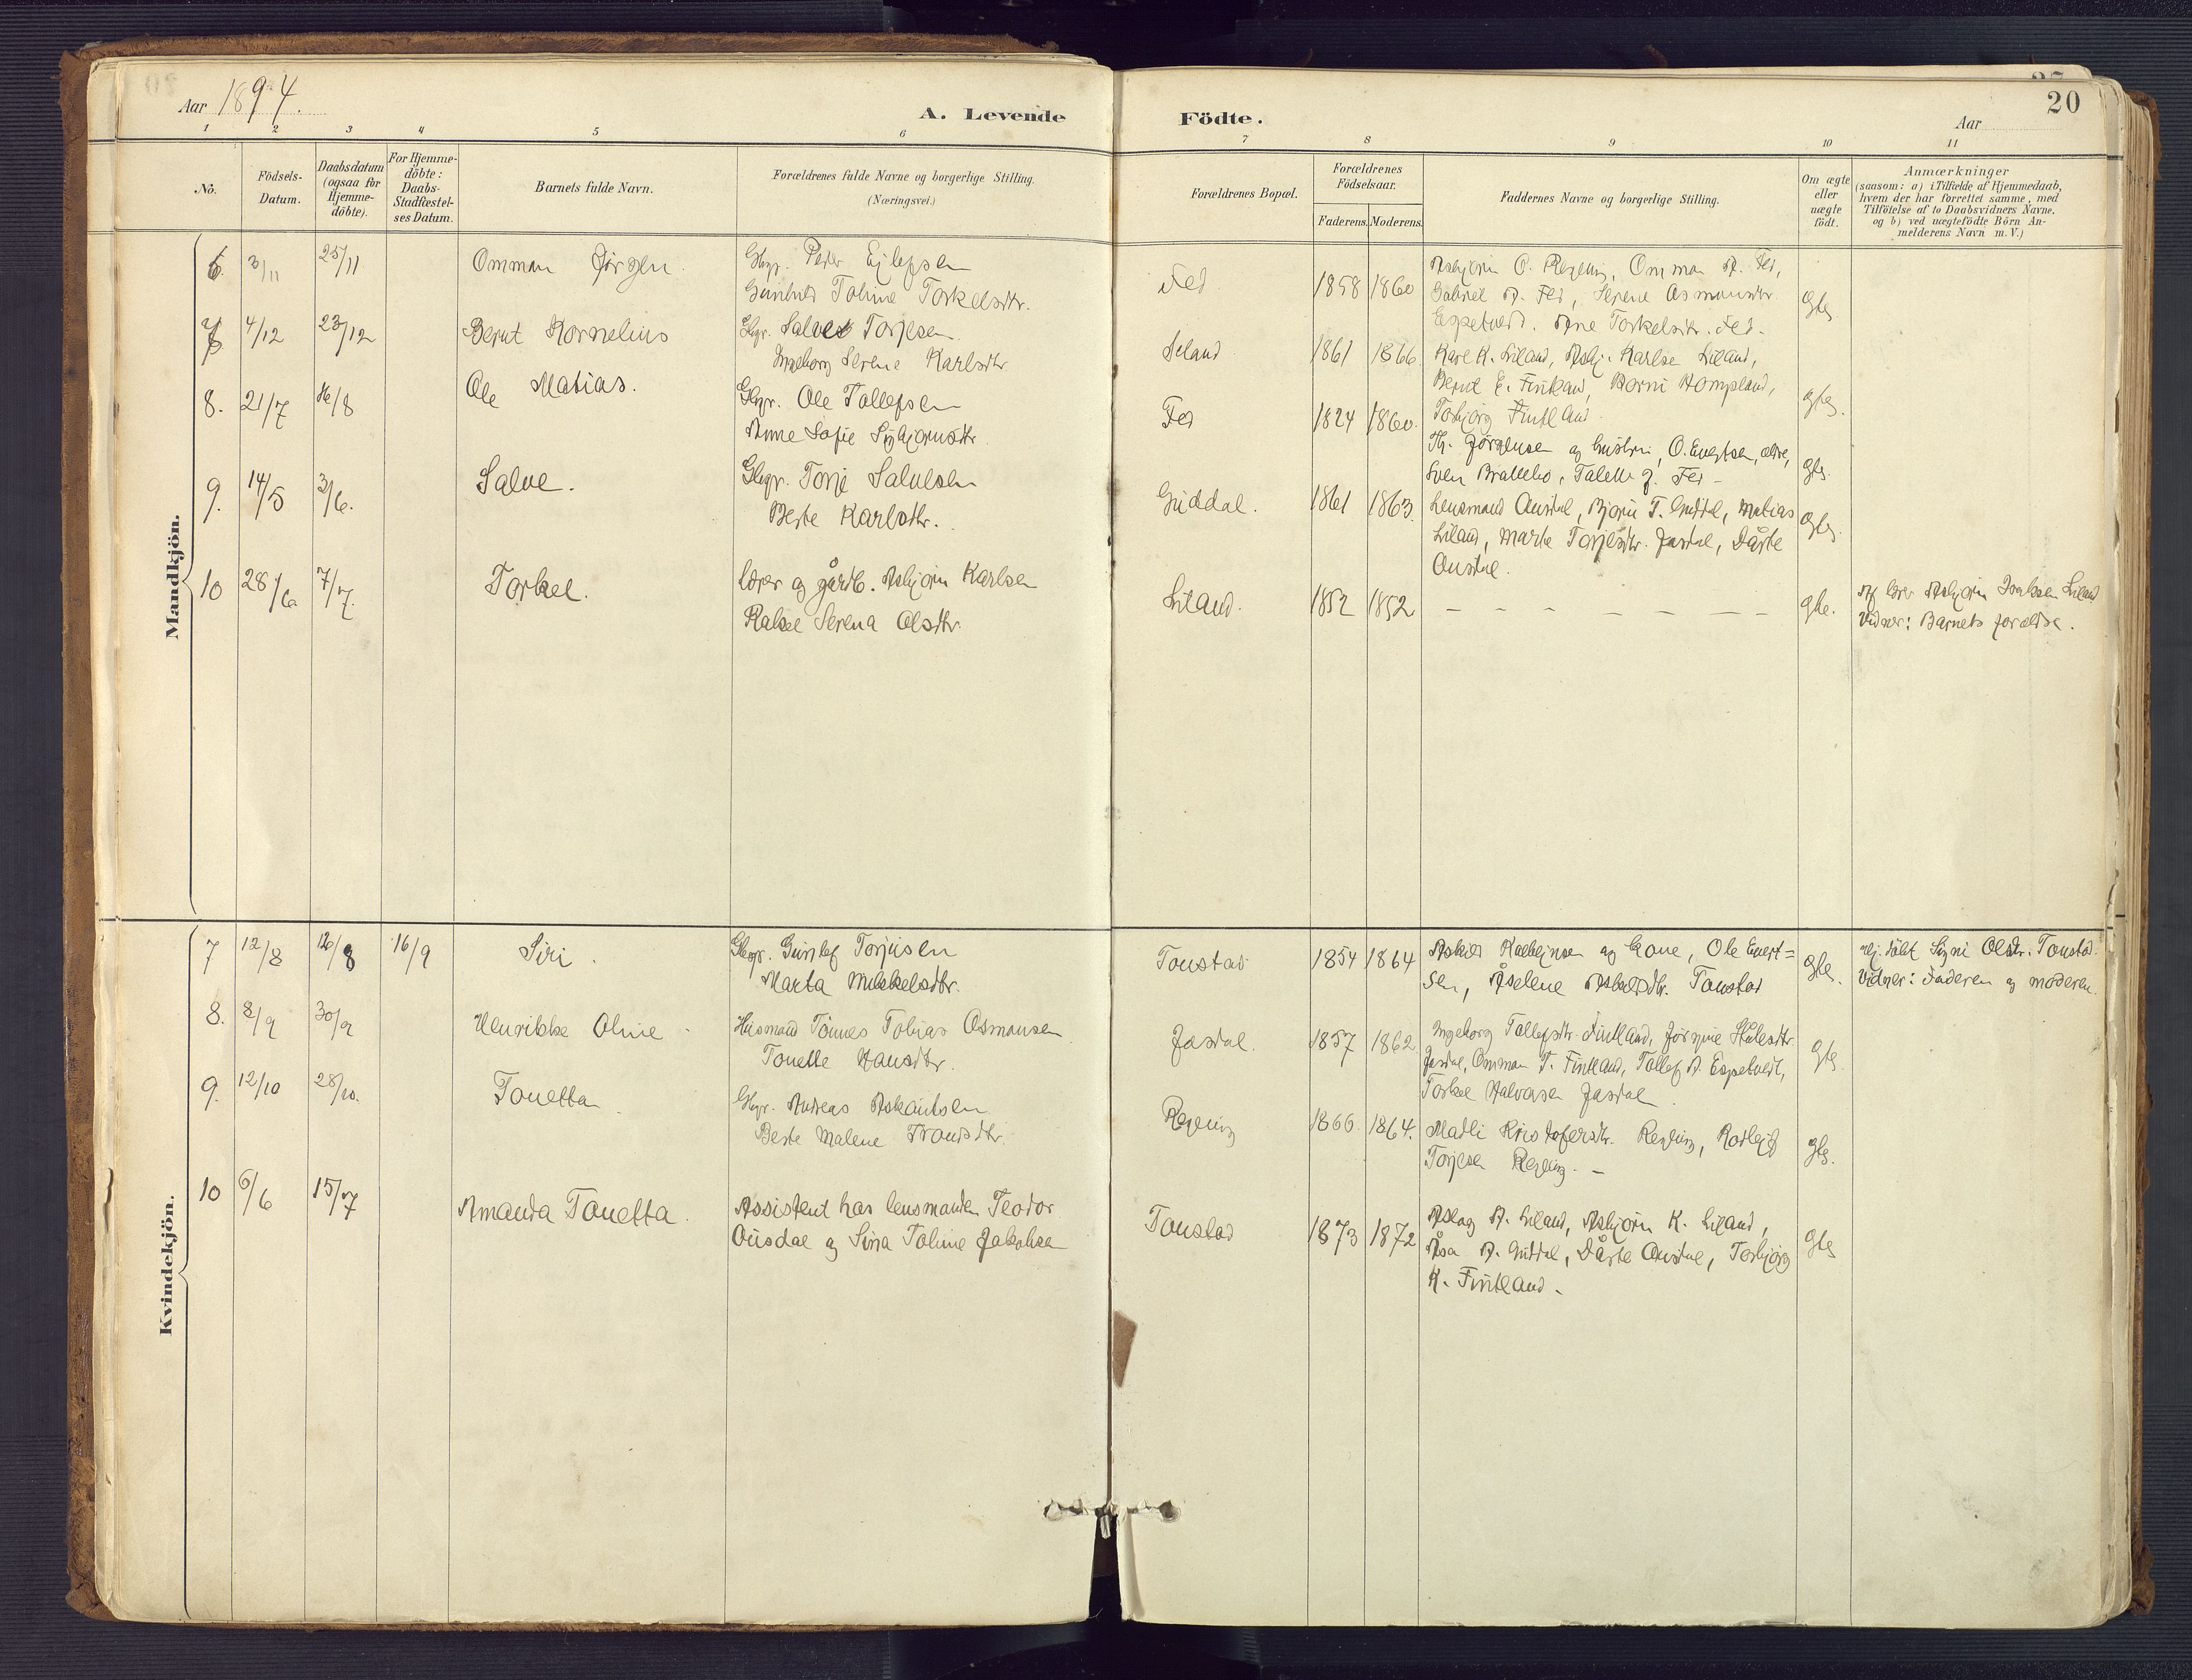 Aar 1894.
A. Levende
Födte.
20
Aar
1 2 3 4 5 6 7 8 9 10 11
No.
Födsels-
Datum.
Daabsdatum
(ogsaa for
Hjemme-
döbte).
For Hjemme-
döbte:
Daabs-
Stadfæstel-
ses Datum.
Barnets fulde Navn.
Forældrenes fulde Navne og borgerlige Stilling.
(Næringsvei.)
Forældrenes Bopæl.
Forældrenes
Födselsaar.
Faderens. Moderens.
Faddernes Navne og borgerlige Stilling.
Om ægte
eller
uægte
födt.
Anmærkninger
(saasom: a) i Tilfælde af Hjemmedaab,
hvem der har forrettet samme, med
Tilföielse af to Daabsvidners Navne,
og b) ved uægtefödte Börn An-
melderens Navn m. V.)
Mandkjön.
6. 3/11 25/11 Omman Jörgen.
Gbgr. Peder Ejlefsen
Gunhild Tobine Torkelsdtr.
Fed 1858 1860
Asbjörn O. Regeling, Omman A. Fed,
Gabriel A. Fed, Serene Asmundsdtr.
Espetveid. Ane Torkelsdtr. Fed.
gte.
7 4/12 23/12 Bernt Kornelius
Gbgr. Salve Torjesen
Ingeborg Serene Karlsdtr.
Liland 1861 1866
Karl K. Liland, Asbj. Karlse Liland,
Bernt E. Fintland, Borni Hompland,
Torbjörg Fintland.
gte.
8. 21/7 16/8 Ole Matias.
Gbgr. Ole Tollefsen
Anne Sofie Sigbjörnsdtr.
Fed 1824 1860.
Th. Jörgensen og hustru, O. Evertsen, ældre,
Sven Brattebo, Taletta J. Fed -
gte.
9. 14/5 3/6. Salve.
Gbgr. Torje Salvesen
Berte Karlsdtr.
Guddal. 1861 1863.
Lensmand Ousdal, Bjorn T. Guddal, Matias
Liland, Marte Torjesdtr. Josdal, Dårte
Ousdal.
gte.
10 28/6 7/7. Torkel.
Lærer og gårdb. Asbjörn Karlsen
Rakel Serena Olsdtr.
Liland. 1852 1852
- - - - - - - -
gte.
Af lærer Asbjörn Liland
Vidner: Barnets forældre.
Kvindekjön.
7 12/8 12/8 16/9 Siri.
Gbgr. Gunlef Torjusen
Marta Mikkelsdtr.
Tonstad 1854 1864
Askild og kone, Ole Evert=
sen, Åselene Tonstad
gte.
Hj. döbt Signi Olsdtr. Tonstad.
Vidner: Faderen og moderen.
8. 8/9 30/9 Henrikke Oline.
Husmand Tönnes Tobias Osmonsen
Tonette Hansdtr.
Josdal. 1857 1862
Ingeborg Tollefsdtr. Fintland, Jörgine
Josdal, Omman T. Fintland, Tollef A. Espetveit,
Torkel Halvorsen Josdal.
gte.
9. 12/10 28/10. Tonetta
Gbgr. Andreas Askautsen
Berte Malene Tronsdtr.
Regeling 1866. 1864.
Malli Kristofersdtr. Regeling, Rodlejf
Torjesen Regeling. -
gte.
10 6/6 15/7 Amanda Tonetta.
Assistent hos lensmanden Teodor
Ousdal og Sina Toline Jakobsen
Tonstad 1873 1872
Aslag A. Liland, Asbjörn K. Liland,
Åsa A. Guddal, Dårte Ousdal, Torbjörg
K. Fintland.
gte